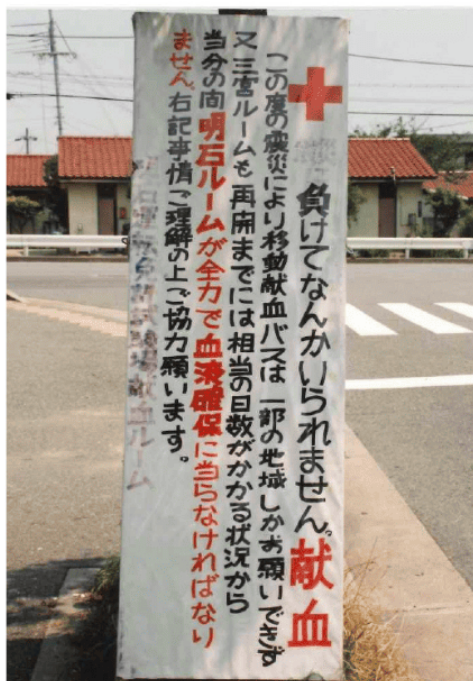 負けてなんかいられません。献血
この度の震災により移動献血バスは 一部の地域しかお願いできず
又 三宮ルームも 再開までには相当の日数がかかる状況から
当分の間 明石ルームが全力で血液確保に当らなければなり
ません。右記事情ご理解の上ご協力願います。
明石運転免許試験場献血ルーム